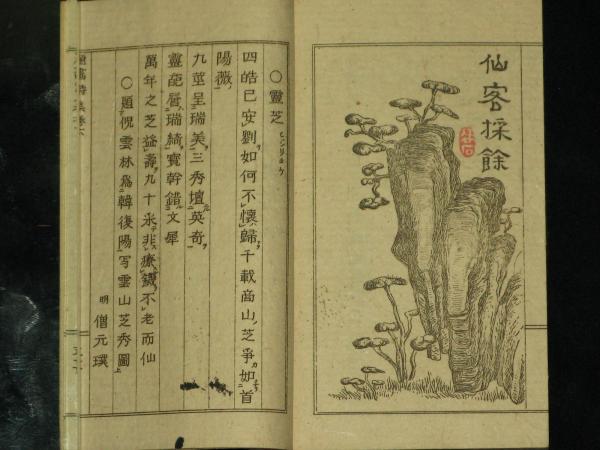 仙客採餘
○靈芝
四皓已安劉如何不懷歸千載商山芝爭如首
陽薇
九莖呈瑞美三秀壇英奇
靈葩屬瑞綺寶幹錯文犀
萬年之芝益壽九十永非療饑不老而仙
○題倪雲林為韓復陽写雲山芝秀圖
明 僧元璞